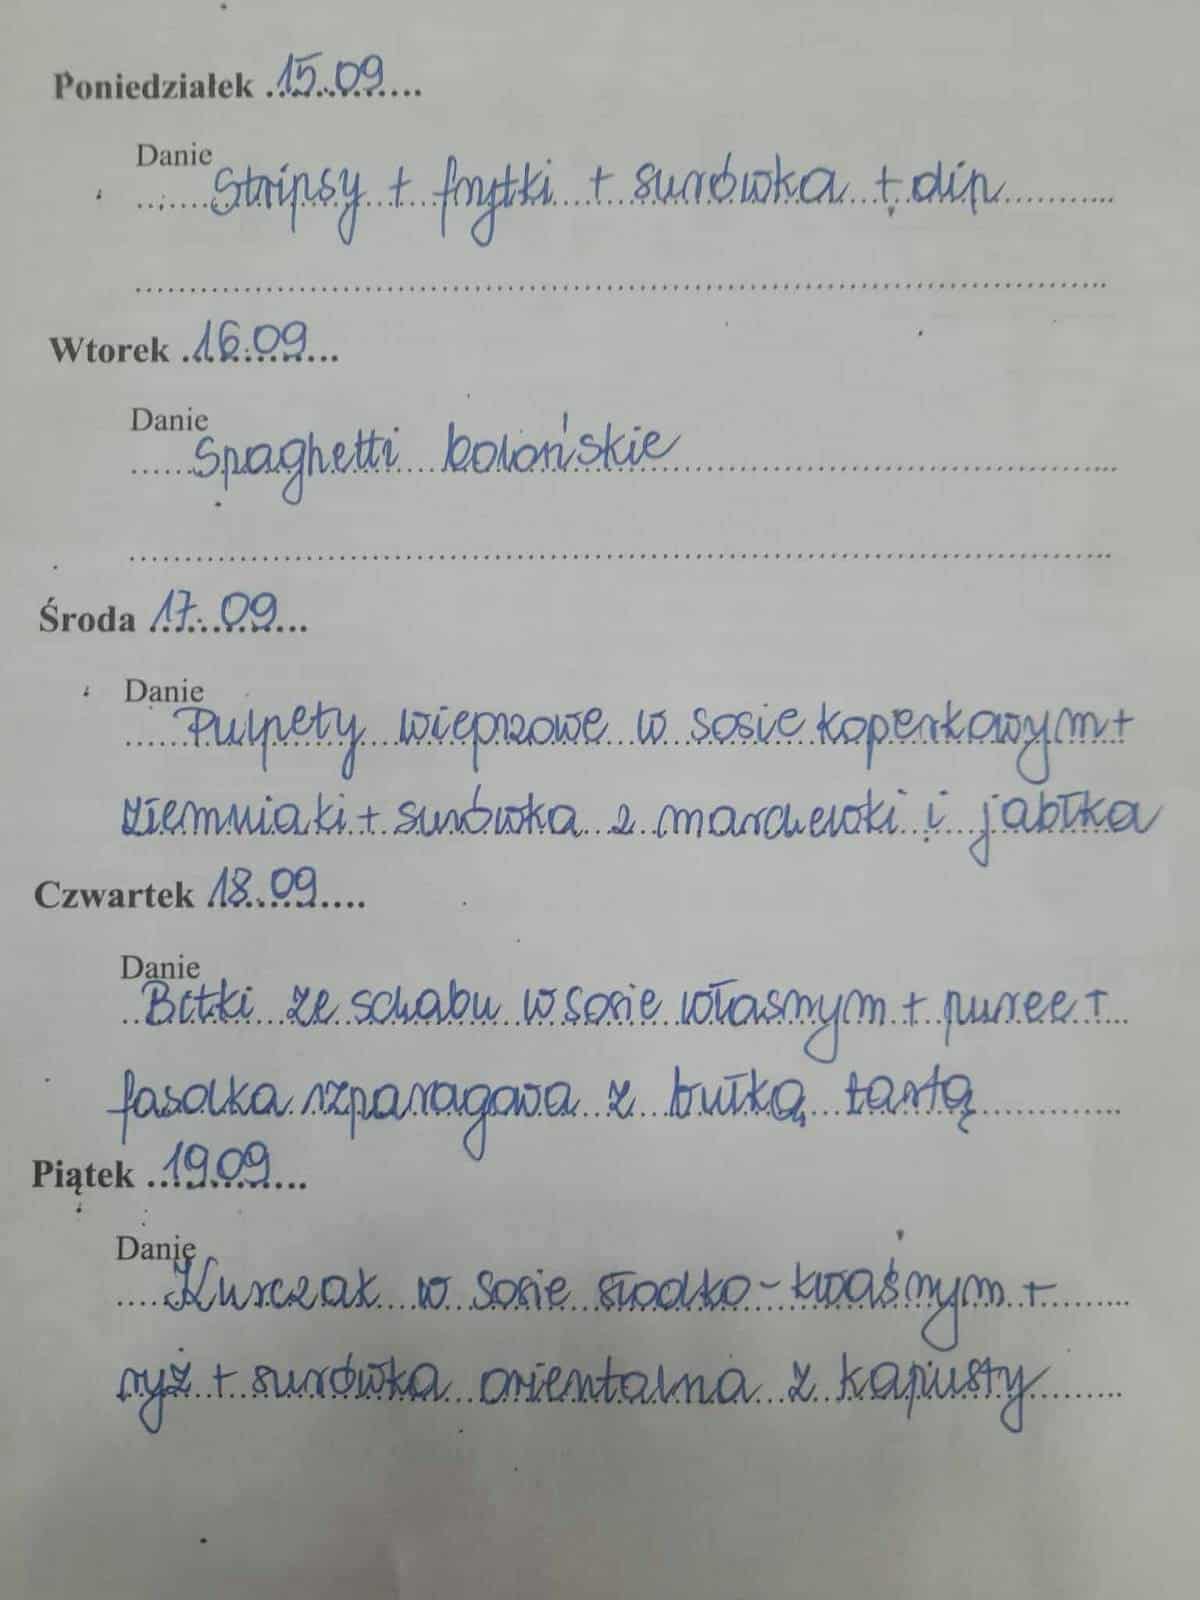 Poniedziałek 15.09
Danie
Stripsy + frytki + surówka + dip
Wtorek 16.09
Danie
Spaghetti bolońskie
Środa 17.09
Danie
Pulpety wieprzowe w sosie koperkowym +
ziemniaki + surówka z marchewki i jabłka
Czwartek 18.09
Danie
Bitki ze schabu w sosie własnym + puree +
fasolka szparagowa z bułką tartą
Piątek 19.09
Danie
Kurczak w sosie słodko-kwaśnym +
ryż + surówka orientalna z kapusty